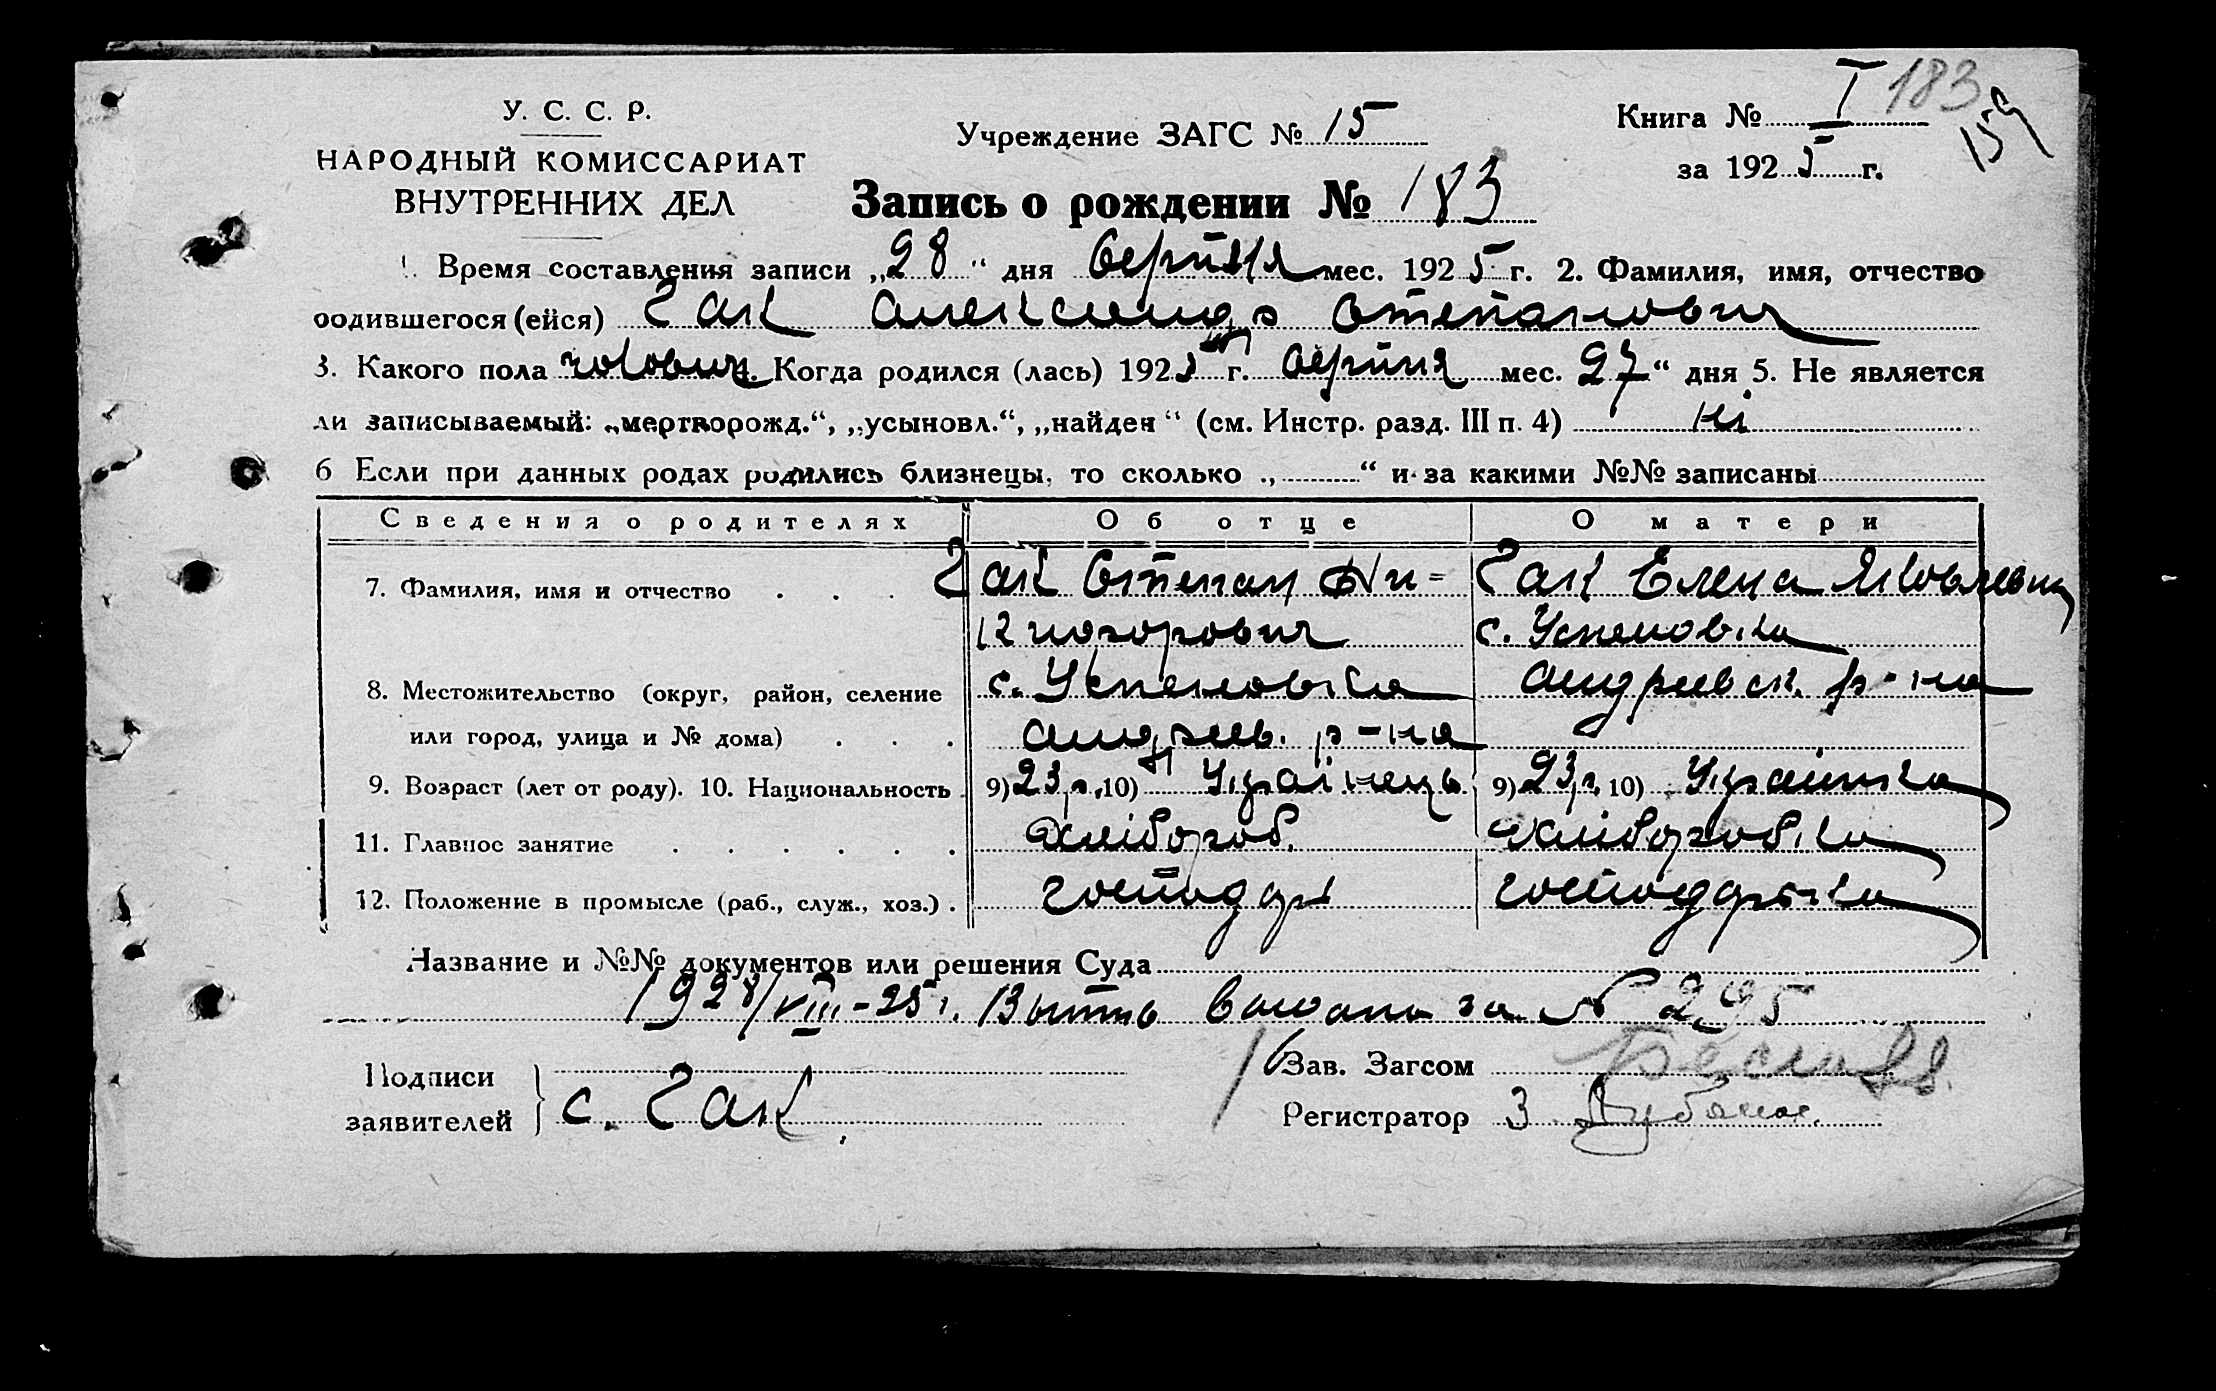 У. С. С. Р.
НАРОДНЫЙ КОМИССАРИАТ
ВНУТРЕННИХ ДЕЛ
Учреждение ЗАГС № 15
Книга № I 183
159
за 1925 г.
Запись о рождении № 183
1. Время составления записи „28“ дня серпня мес. 1925 г. 2. Фамилия, имя, отчество
родившегося (ейся) Гак Александр Степанович
3. Какого пола чоловіч 4. Когда родился (лась) 1925 г. серпня мес. 27“ дня 5. Не является
ли записываемый: „мертворожд.“, „усыновл.“, „найден“ (см. Инстр. разд. III п. 4) ні
6 Если при данных родах родились близнецы, то сколько „ “ и за какими №№ записаны
Сведения о родителях Об отце О матери
7. Фамилия, имя и отчество . . . Гак Степан Ни= Гак Елена Яковлевна
кифорович с. Успеновка
8. Местожительство (округ, район, селение с. Успеновка Андреевск. р-на
или город, улица и № дома) . . . Андреев. р-на
9. Возраст (лет от роду). 10. Национальность . 9) 23 р. 10) Українець 9) 23 р. 10) Українка
11. Главное занятие . . . . . . Хлібороб. Хліборобка
12. Положение в промысле (раб., служ., хоз.) . господар господарька
Название и №№ документов или решения Суда
1928/VIII-25 г. Выпись выдана за № 295
Подписи
заявителей } с. Гак
Зав. Загсом
Регистратор З